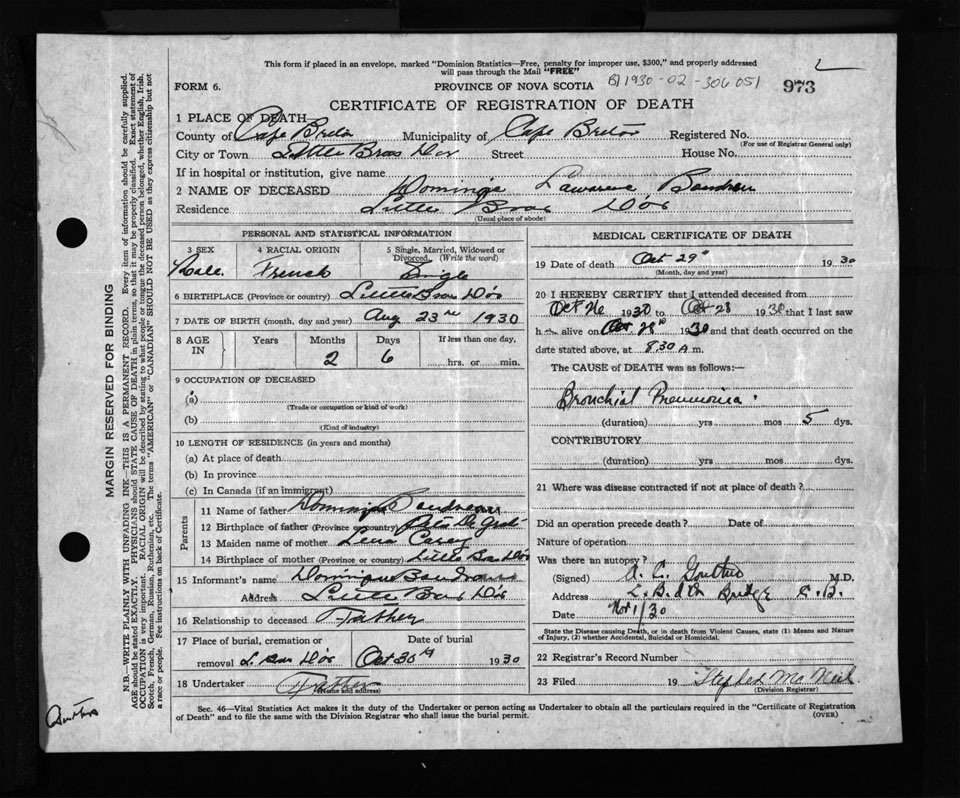 This form if placed in an envelope, marked "Dominion Statistics—Free, penalty for improper use, $300," and properly addressed
will pass through the Mail "FREE"
FORM 6. PROVINCE OF NOVA SCOTIA B1930-02-306051 973
CERTIFICATE OF REGISTRATION OF DEATH
1 PLACE OF DEATH
County of Cape Breton Municipality of Cape Breton Registered No.
(For use of Registrar General only)
City or Town Little Bras Dor Street House No.
If in hospital or institution, give name
2 NAME OF DECEASED Dominic Lawrence Boudreau
Residence Little Bras Dor
(Usual place of abode)
PERSONAL AND STATISTICAL INFORMATION
3 SEX 4 RACIAL ORIGIN 5 Single, Married, Widowed or Divorced. (Write the word)
Male. French Single
6 BIRTHPLACE (Province or country) Little Bras D'or
7 DATE OF BIRTH (month, day and year) Aug 23rd 1930
8 AGE IN Years Months Days If less than one day,
2 6 hrs. or min.
9 OCCUPATION OF DECEASED
(a)
(Trade or occupation or kind of work)
(b)
(Kind of industry)
10 LENGTH OF RESIDENCE (in years and months)
(a) At place of death
(b) In province
(c) In Canada (if an immigrant)
Parents
11 Name of father Dominique Boudreau
12 Birthplace of father (Province or country) De Grat
13 Maiden name of mother Lena
14 Birthplace of mother (Province or country) Little Bras Dor
15 Informant's name Dominique Boudreau
Address Little Bras Dor
16 Relationship to deceased Father
17 Place of burial, cremation or Date of burial
removal L. Bras D'or Oct 30th 1930
18 Undertaker Father
(Name and address)
MEDICAL CERTIFICATE OF DEATH
19 Date of death Oct 29th 1930
(Month, day and year)
20 I HEREBY CERTIFY that I attended deceased from
Oct 26 1930 to Oct 28 1930 that I last saw
h alive on Oct 28th 1930 and that death occurred on
date stated above, at 8 30 A m.
The CAUSE of DEATH was as follows:—
Bronchial Pneumonia.
(duration) yrs mos 5 dys.
CONTRIBUTORY
(duration) yrs mos dys.
21 Where was disease contracted if not at place of death?
Did an operation precede death? Date of
Nature of operation
Was there an autopsy?
(Signed) A. C. M.D.
Address L. B. d'Or Bridge C.B.
Date Nov 1/30
State the Disease causing Death, or in death from Violent Causes, state (1) Means and Nature
of Injury, (2) whether Accidental, Suicidal or Homicidal.
22 Registrar's Record Number
23 Filed 19 Stephen McNeil
(Division Registrar)
Sec. 46—Vital Statistics Act makes it the duty of the Undertaker or person acting as Undertaker to obtain all the particulars required in the "Certificate of Registration
of Death" and to file the same with the Division Registrar who shall issue the burial permit.
(OVER)
MARGIN RESERVED FOR BINDING
N.B.—WRITE PLAINLY WITH UNFADING INK—THIS IS A PERMANENT RECORD. Every item of information should be carefully supplied.
AGE should be stated EXACTLY. PHYSICIANS should STATE CAUSE OF DEATH in plain terms, so that it may be properly classified. Exact statement of
OCCUPATION is very important. RACIAL ORIGIN will be described by stating to what people or tongue the deceased person belonged, whether English, Irish,
Scotch, French, German, Russian, Ruthenian, etc. The terms "AMERICAN" or "CANADIAN" SHOULD NOT BE USED as they express citizenship but not
a race or people. Fee instructions on back of Certificate.